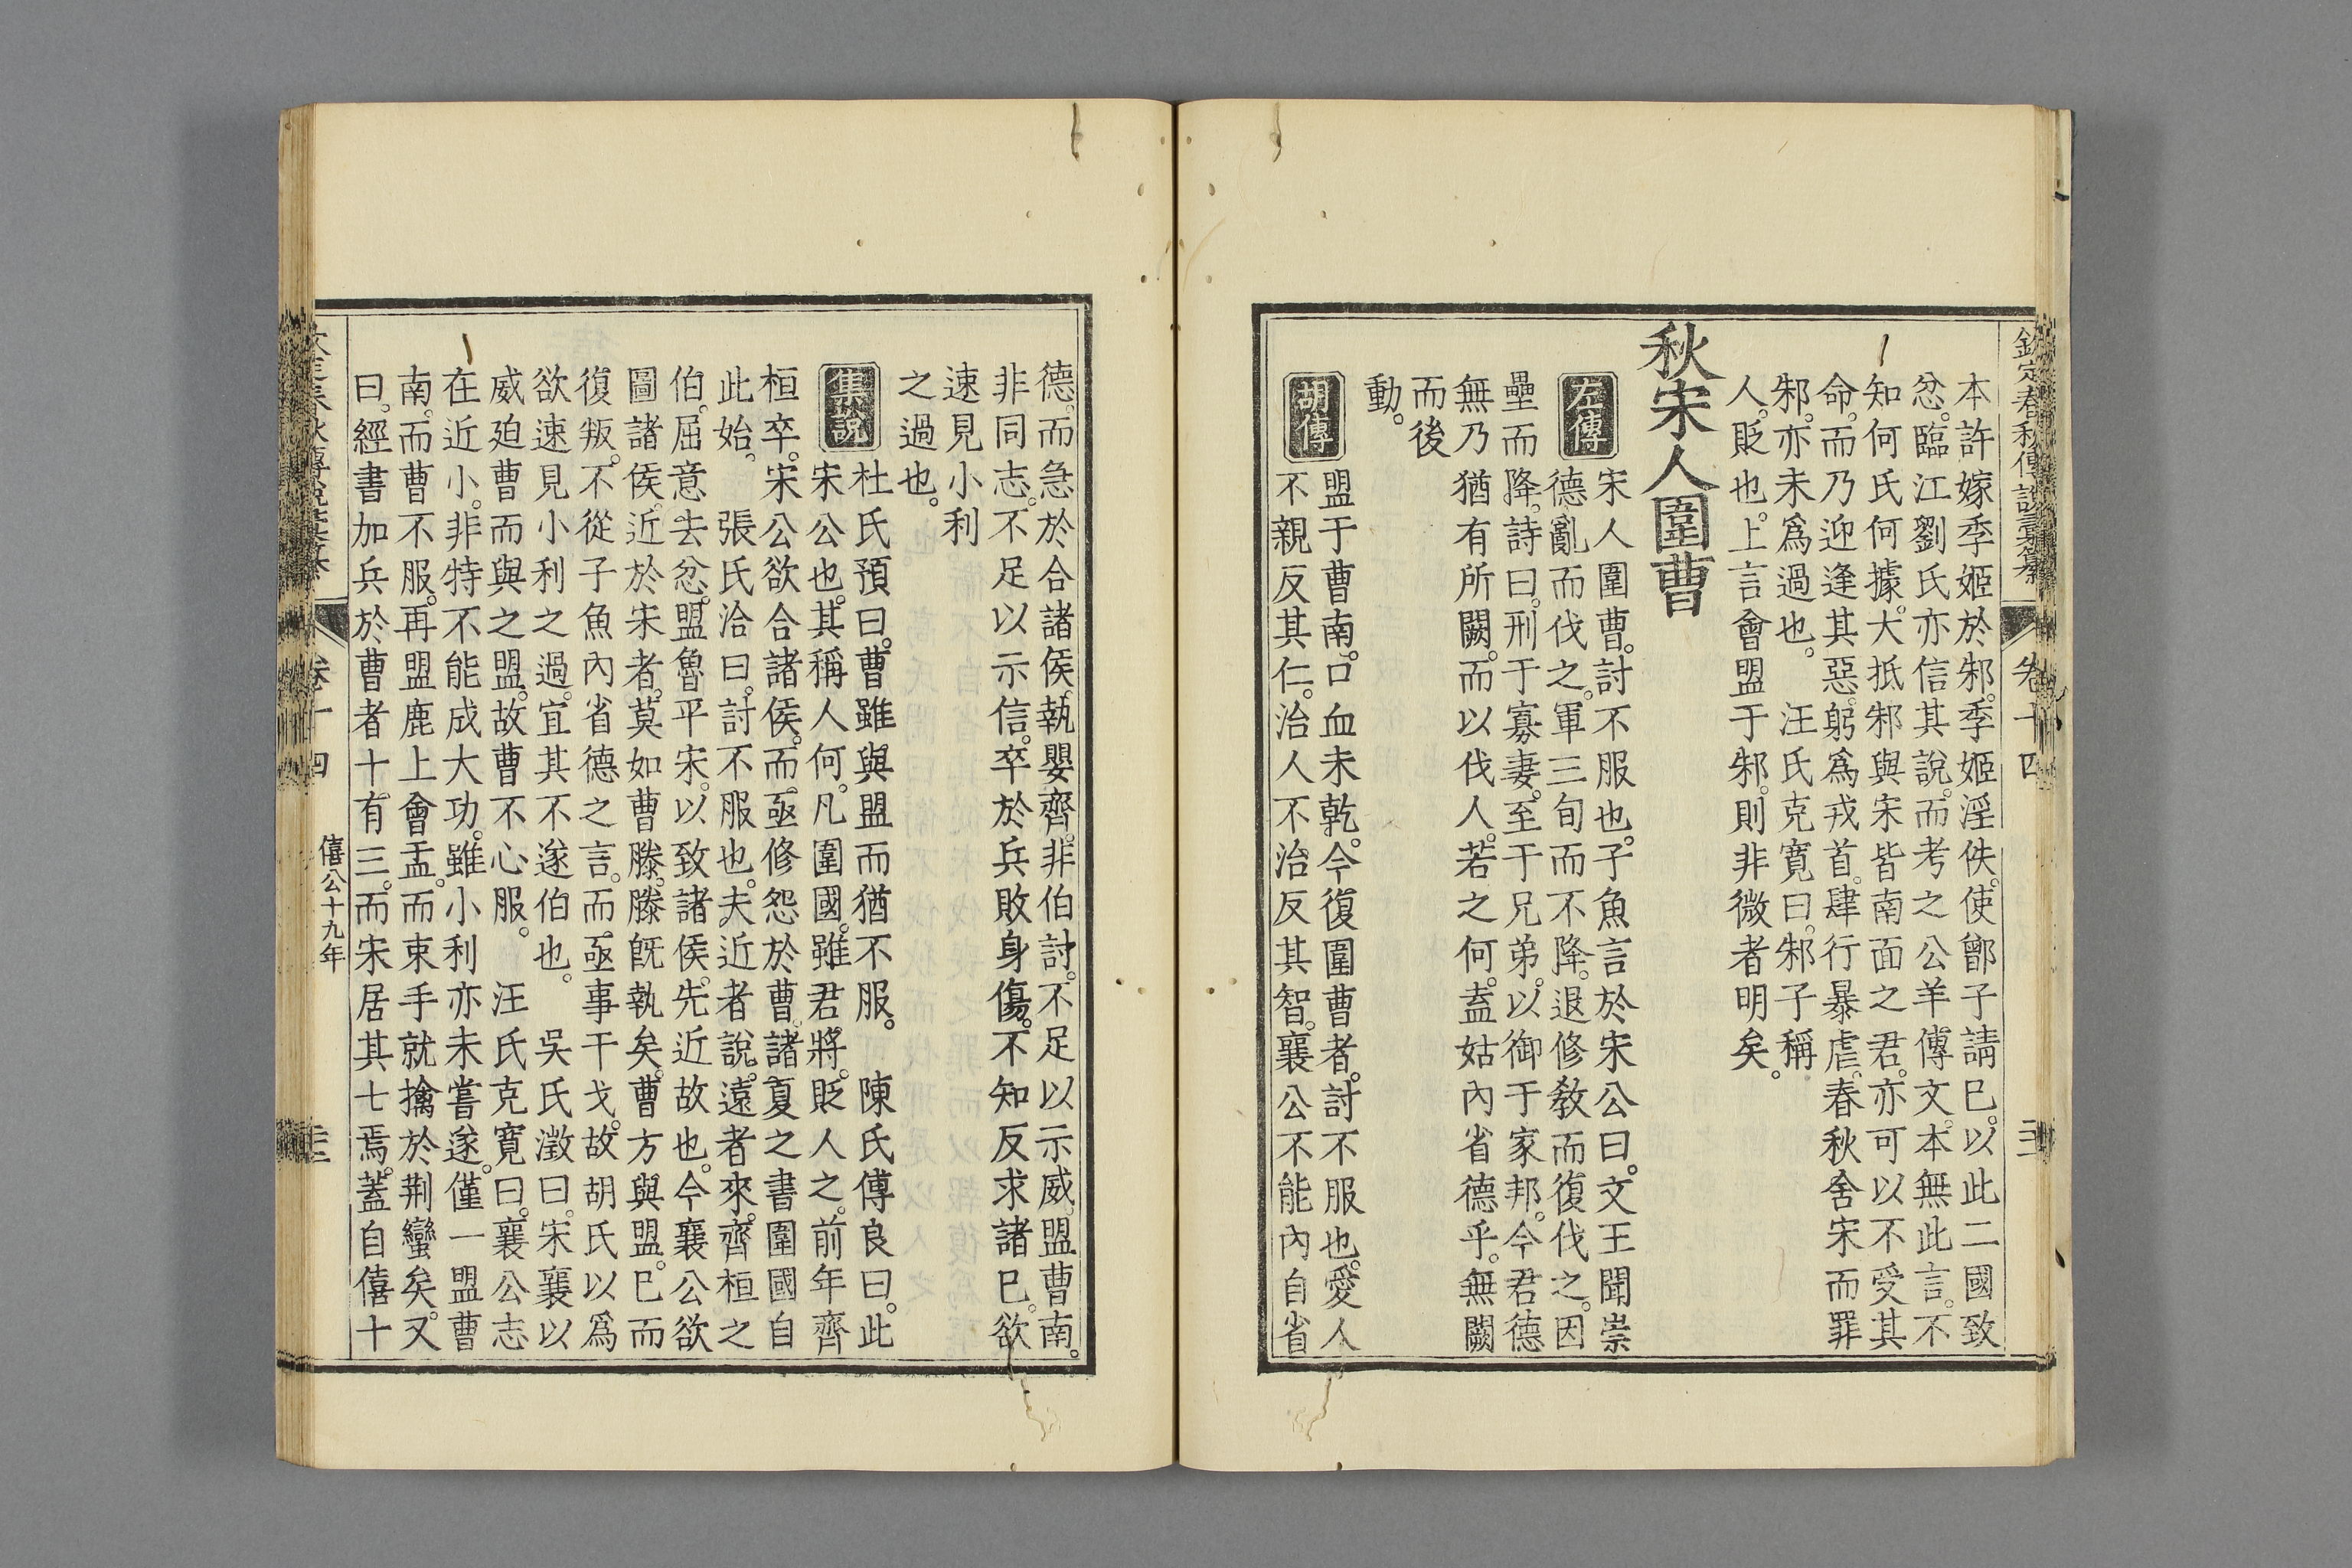 欽定春秋傳說彙纂 卷十四
本許嫁季姬於邾。季姬淫佚。使鄫子請已。以此二國致
忿。臨江劉氏亦信其說。而考之公羊傳文。本無此言。不
知何氏何據。大抵邾與宋皆南面之君。亦可以不受其
命。而乃迎逢其惡。躬爲戎首。肆行暴虐。春秋舍宋而罪
邾。亦未爲過也。 汪氏克寬曰。邾子稱
人。貶也。上言會盟于邾。則非微者明矣。
秋宋人圍曹
左傳
宋人圍曹。討不服也。子魚言於宋公曰。文王聞崇
德亂而伐之。軍三旬而不降。退修敎而復伐之。因
壘而降。詩曰。刑于寡妻。至于兄弟。以御于家邦。今君德
無乃猶有所闕。而以伐人。若之何。盍姑內省德乎。無闕
而後
動。
胡傳
盟于曹南。口血未乾。今復圍曹者。討不服也。愛人
不親反其仁。治人不治反其智。襄公不能內自省
德。而急於合諸侯。執嬰齊。非伯討。不足以示威。盟曹南。
非同志。不足以示信。卒於兵敗身傷。不知反求諸已。欲
速見小利
之過也。
集說
杜氏預曰。曹雖與盟而猶不服。 陳氏傅良曰。此
宋公也。其稱人何。凡圍國。雖君將。貶人之。前年齊
桓卒。宋公欲合諸侯。而亟修怨於曹。諸夏之書圍國自
此始。 張氏洽曰。討不服也。夫近者說。遠者來。齊桓之
伯。屈意去忿。盟魯平宋。以致諸侯。先近故也。今襄公欲
圖諸侯。近於宋者。莫如曹滕。滕旣執矣。曹方與盟。已而
復叛。不從子魚內省德之言。而亟事干戈。故胡氏以爲
欲速見小利之過。宜其不遂伯也。 吳氏澂曰。宋襄以
威廹曹而與之盟。故曹不心服。 汪氏克寬曰。襄公志
在近小。非特不能成大功。雖小利亦未嘗遂。僅一盟曹
南。而曹不服。再盟鹿上會盂。而束手就擒於荆蠻矣。又
曰。經書加兵於曹者十。有三。而宋居其七焉。蓋自僖十
卷十四 僖公十九年